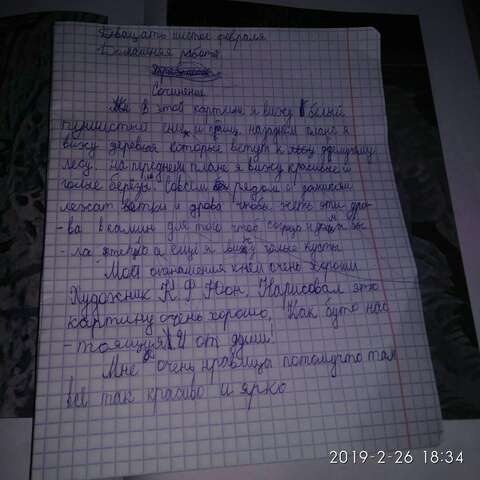 Двацать шестое февраля
Домашняя работа
Сочинение
В этой картине я вижу белый
пушистый снег и птиц, на заднем плане я
вижу деревья которые ведут к
лесу. на переднем плане я вижу красивые и
голые берёзы. Совсем рядом с домиком
лежат ветки и дрова чтобы жечь эти дро-
-ва в камине для того чтоб
а ещё я вижу голые кусты
Мои отношения к ней очень хорошии
Художник К.Ф Юон. Нарисовал эту
картину очень хорошо, Как буто нас
-тоящуя! И от души!
Мне очень нравица потомучто там
всё так красиво и ярко
2019-2-26 18:34